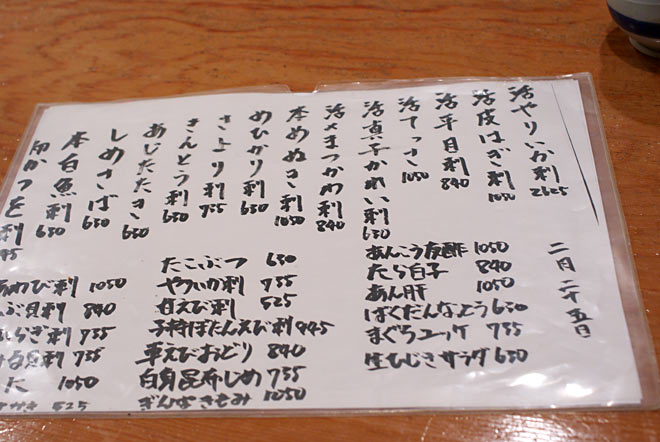 二月二十五日
活やりいか刺 2625
活皮はぎ刺 1050
活平目刺 840
活てっさ 1050
活真子かれい刺 630
活〆まつかわ刺 840
本めぬき刺 1050
めひかり刺 630
さより刺 735
きんとう刺 630
あじたたき 630
しめさば 630
本白魚刺 630
かつを刺
あんこう友酢 1050
たら白子 840
あん肝 1050
ばくだんなっとう 630
まぐろユッケ 735
生ひじきサラダ 630
たこぶつ 630
やりいか刺 735
甘えび刺 525
子持ぼたんえび刺 945
車えびおどり 840
白身昆布じめ 735
ぎんなきもみ 1050
あわび刺 1050
ぶ貝刺 840
らぎ刺 735
貝刺 735
た 1050
かき 525